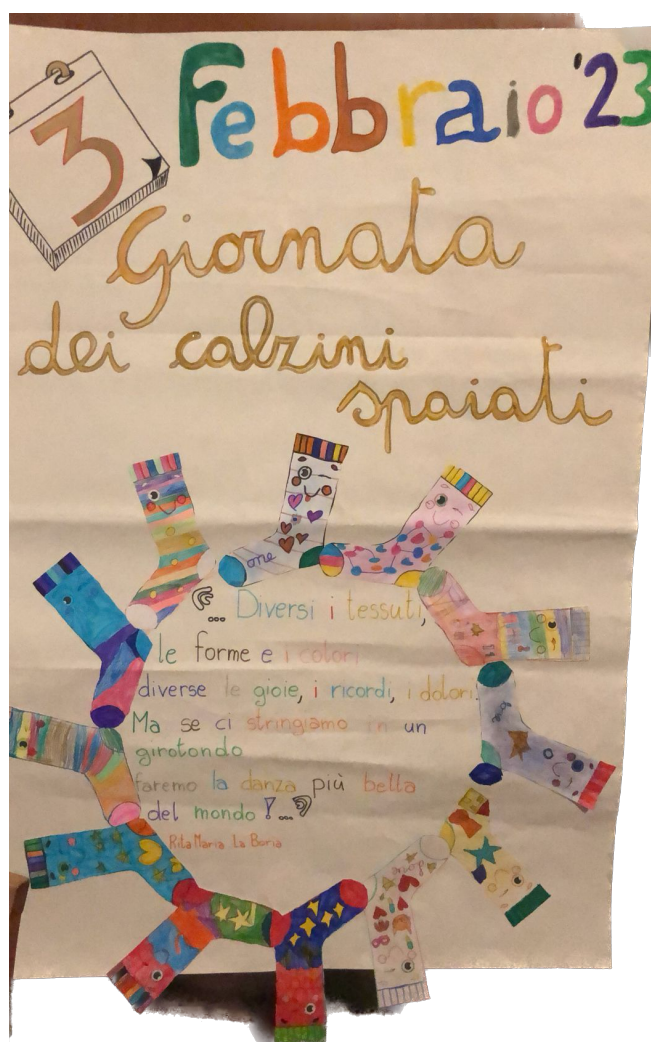 3
Febbraio '23
Giornata
dei calzini
spaiati
one
"... Diversi i tessuti,
le forme e i colori
diverse le gioie, i ricordi, i dolori
Ma se ci stringiamo in un
girotondo
faremo la danza più bella
del mondo! ..."
Rita Maria La Boria